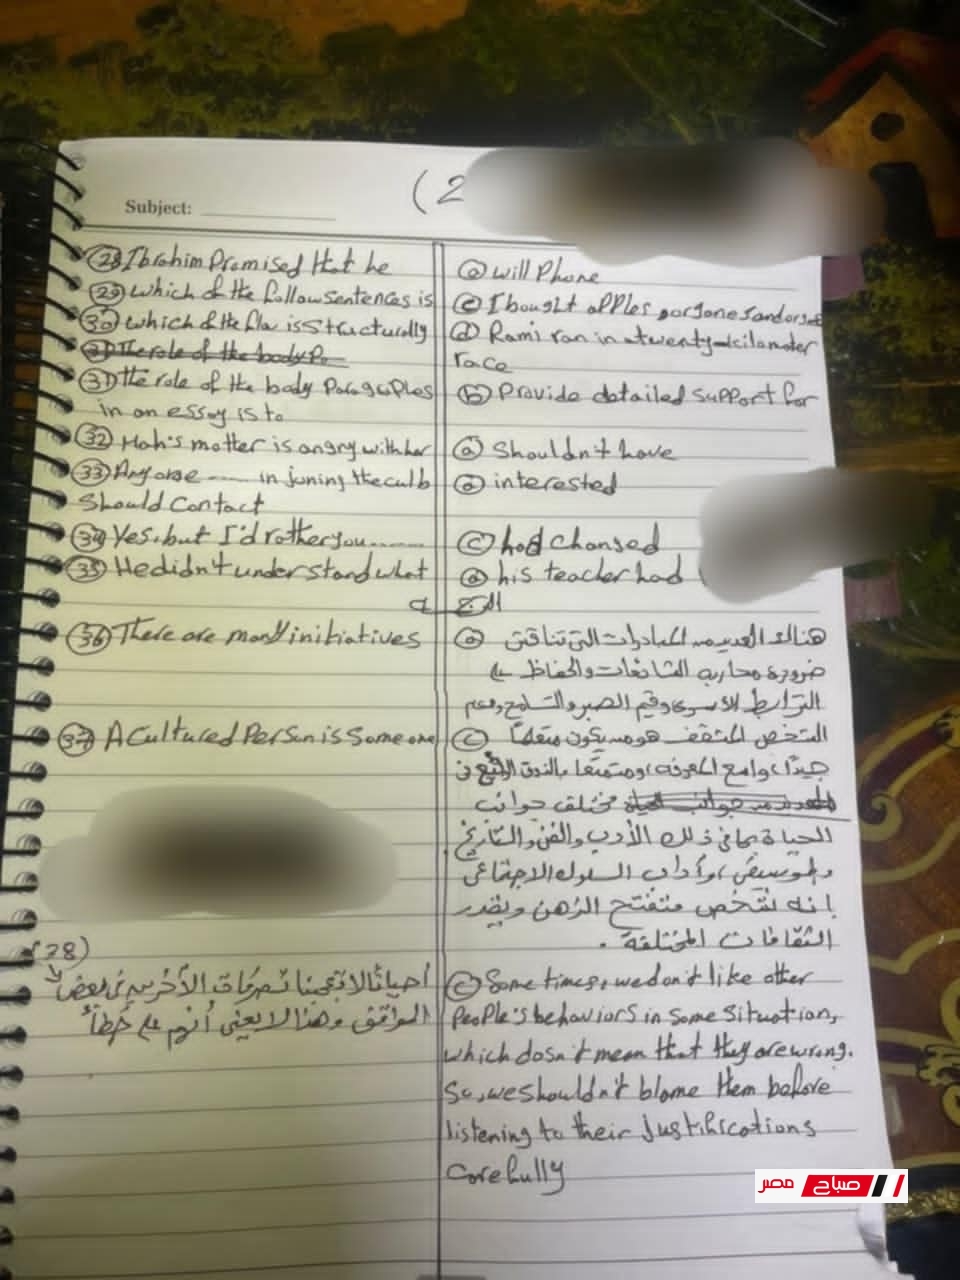 (2
Subject:
(28) Ibrahim Promised that he
(a) will Phone
(29) which of the follow sentences is
(c) I bought apples
(30) which of the flw is structurally
(d) Rami ran in a twenty-kilamater
race
31) The role of the body Pa
(31) the role of the body Paragraphes
in an essay is to
(b) Provide detailed support for
(32) Mah's motter is angry with her
(a) Shouldn't have
(33) Anyone ------ in juning the culb
Should Contact
(a) interested
(34) Yes, but I'd rather you ------
(c) had changed
(35) He didn't understand what
(a) his teacher had
(36) There are many initiatives
(a) هناك العديد من المبادرات التى تناقش
ضرورة محاربة الشائعات والحفاظ على
الترابط الاسرى وقيم الصبر والتسامح
(37) A Cultured Person is Someone
(c) الشخص المثقف هو من يكون متعلمًا
جيدًا، واسع المعرفة، ومتمتعا بالذوق الرفيع فى
مختلف جوانب
الحياة بما فى ذلك الأدب والفن والتاريخ
والموسيقى، وأداب السلوك الاجتماعى
إنه شخص متفتح الذهن ويقدر
الثقافات المختلفة.
(28)
أحيانًا لا تعجبنا تصرفات الأخرين فى بعض
المواقف وهذا لا يعنى أنهم على خطأ
(c) Sometimes, we don't like other
People's behaviors in some situation,
which dosn't mean that they are wrong.
So, we shouldn't blame them before
listening to their Justifications
Carefully
صباح مصر